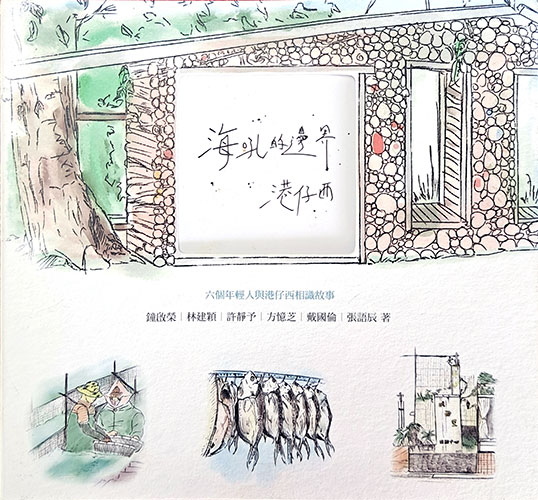 海吼的邊界
港仔西
六個年輕人與港仔西相識故事
鐘啟榮｜林建穎｜許靜予｜方憶芝｜戴國倫｜張語辰 著